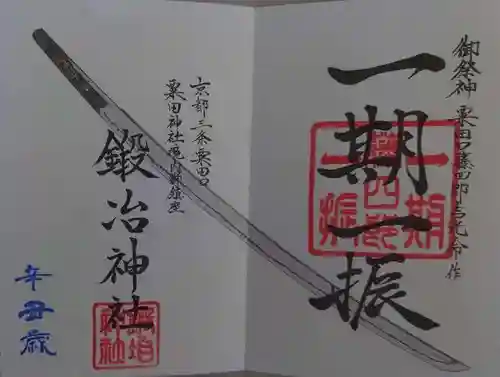 御祭神 粟田口藤四郎吉光命作
一期一振
京都三条粟田口
粟田神社
鍛冶神社
辛丑歳
鍛冶
神社